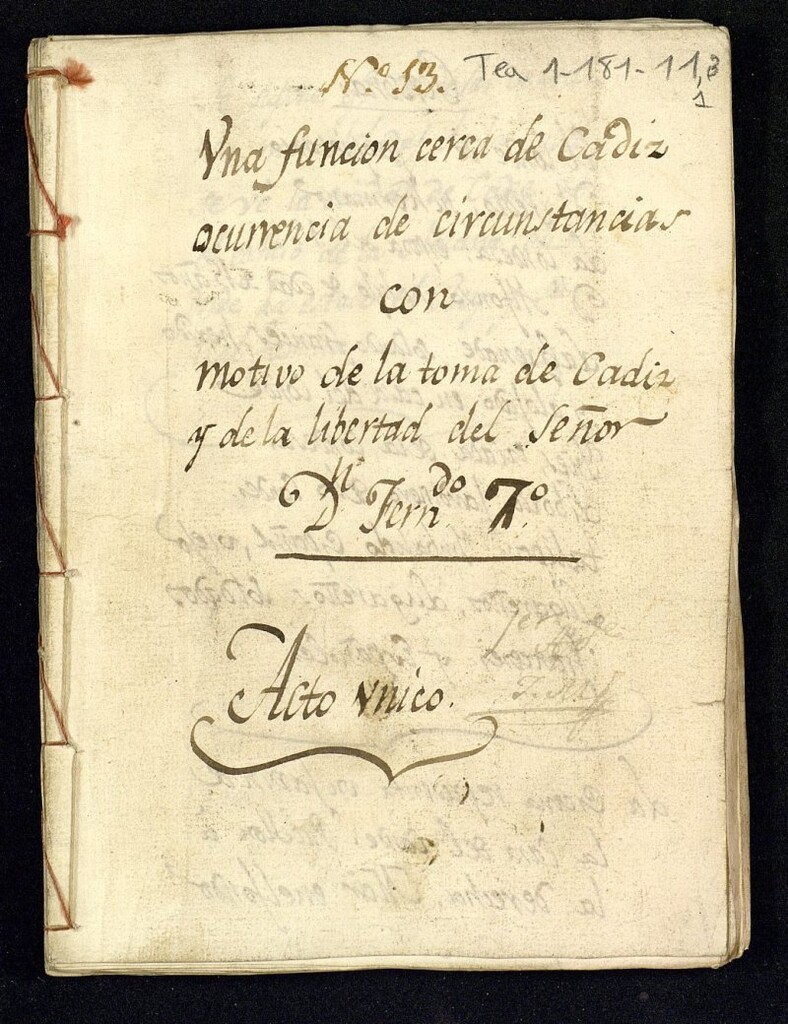 N.º 13. Tea 1-181-11,B
1
Vna funcion cerca de Cadiz
ocurrencia de circunstancias
con
motivo de la toma de Cadiz
y de la libertad del Señor
Dⁿ Fernᵈᵒ 7.º
Acto vnico.